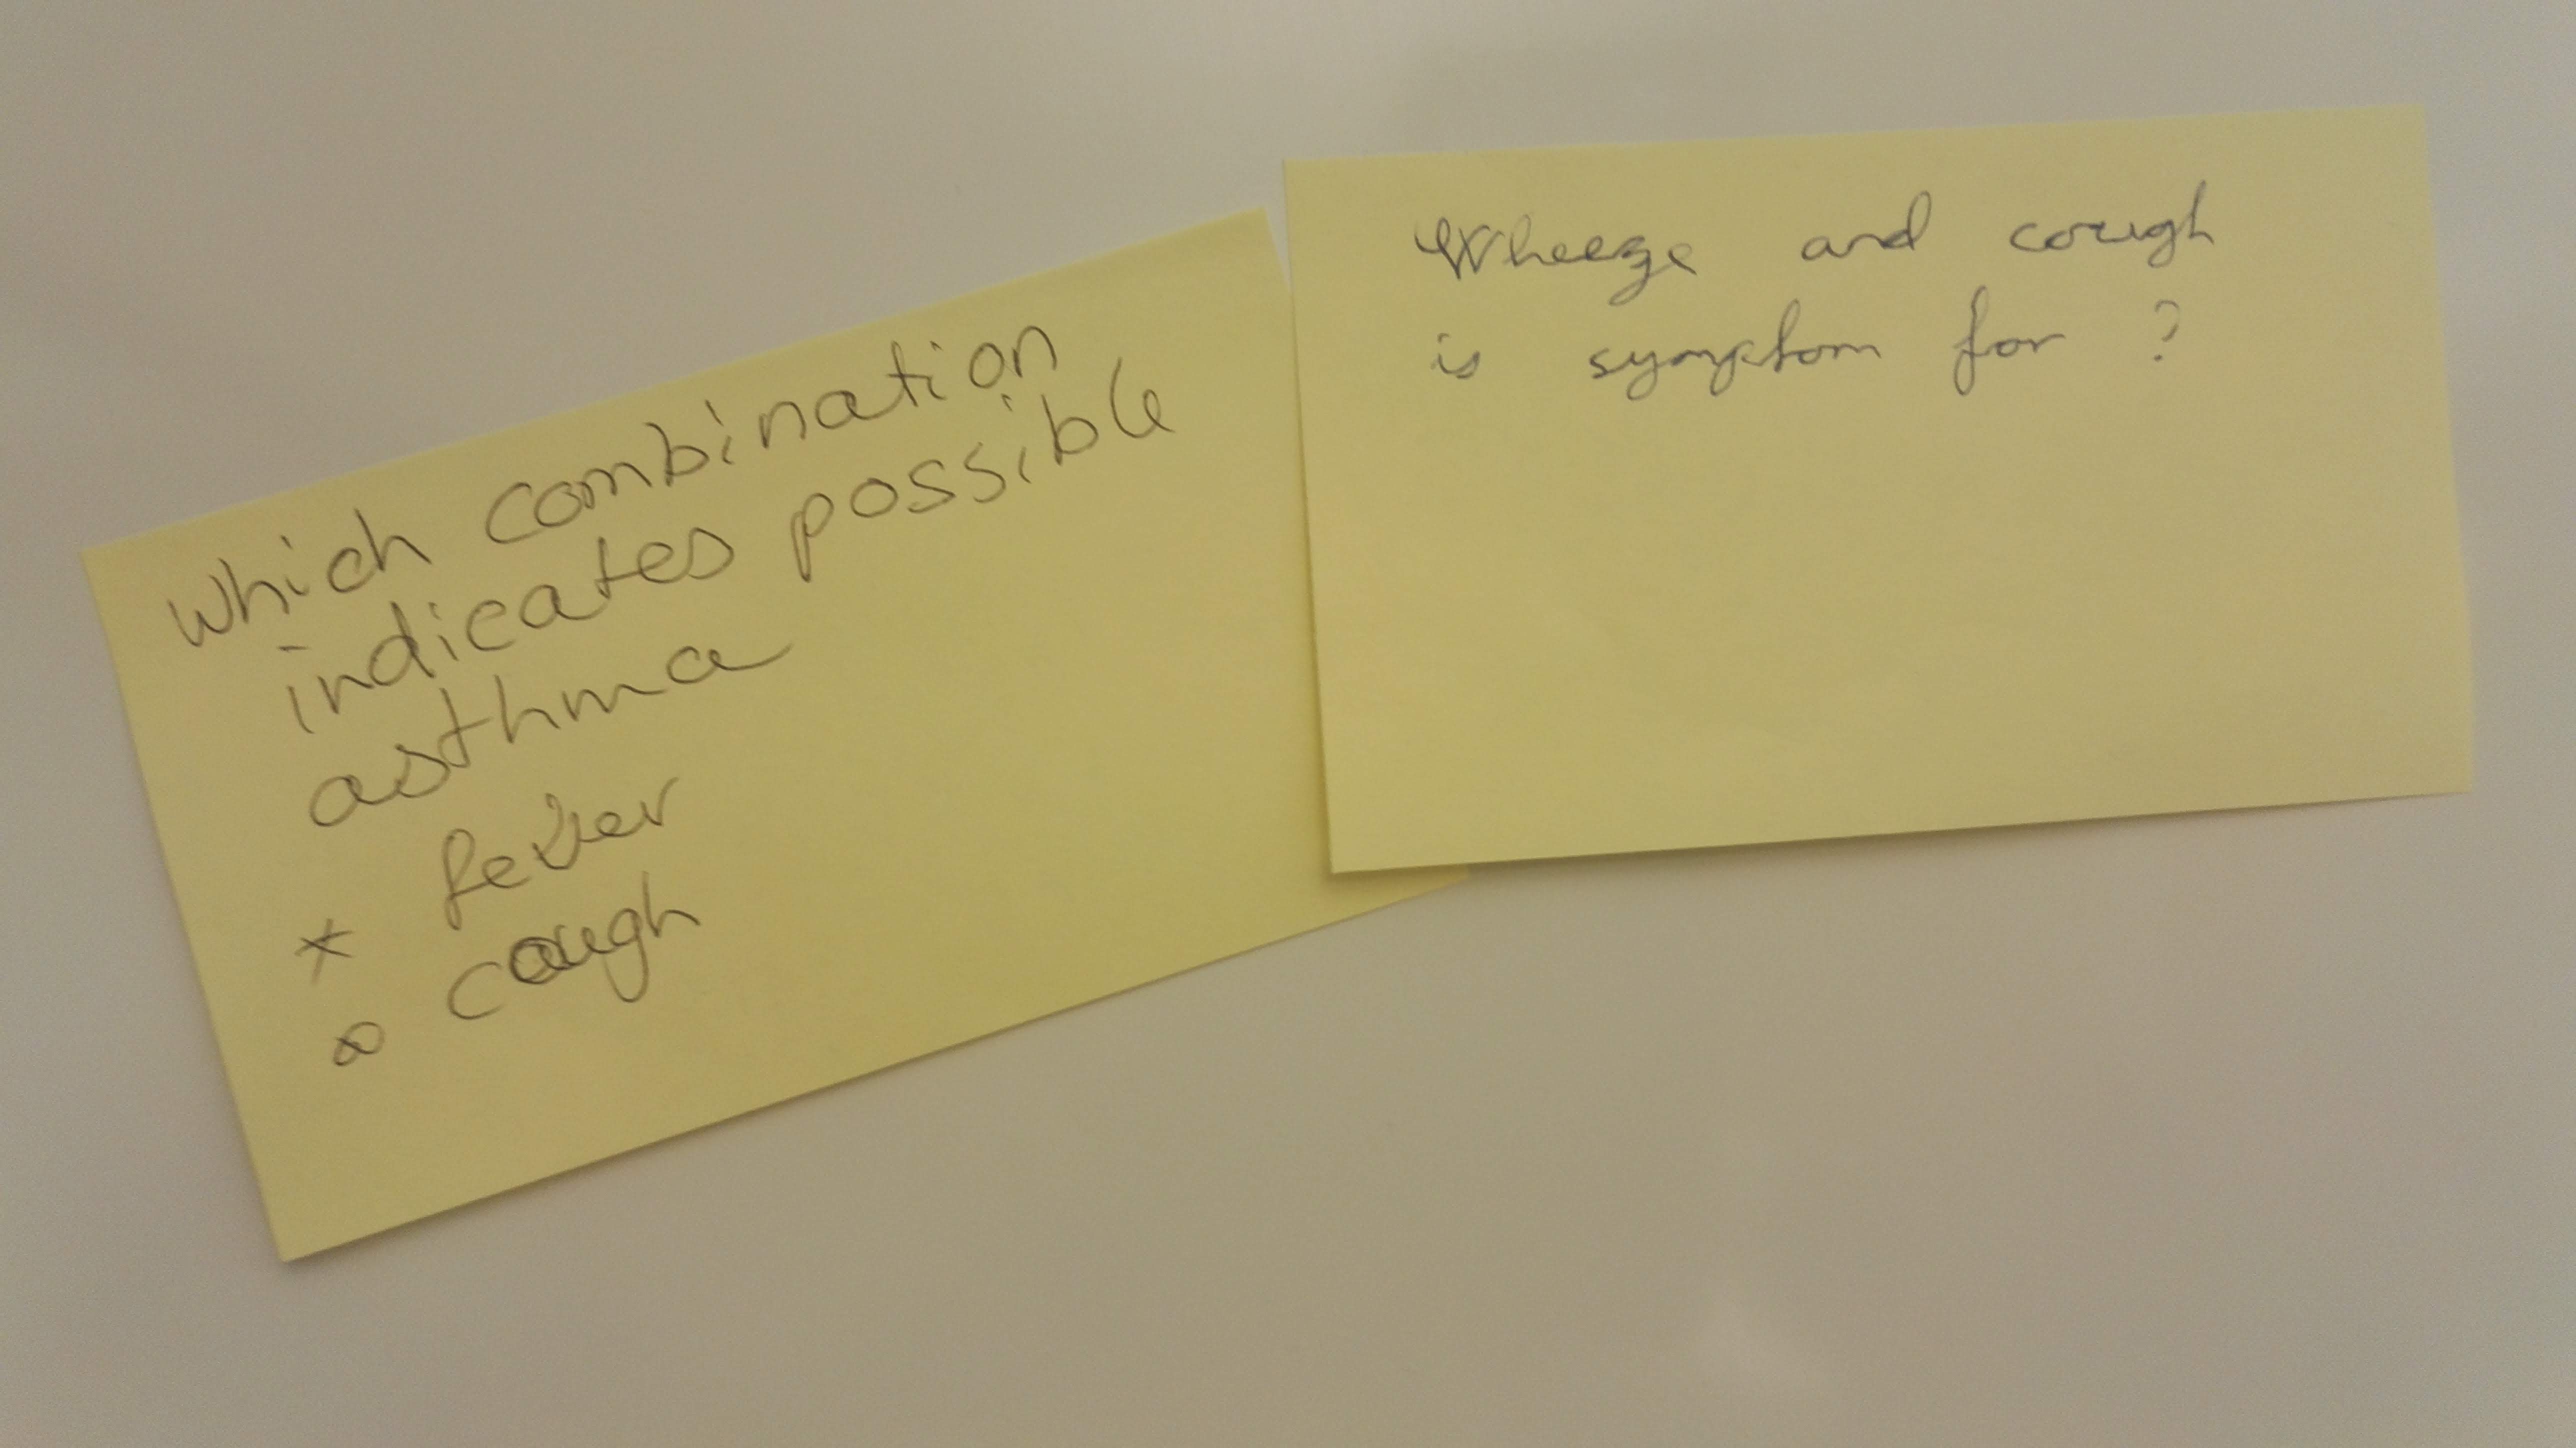 which combination
indicates possible
asthma
* fever
* cough
Wheeze and cough
is symptom for ?